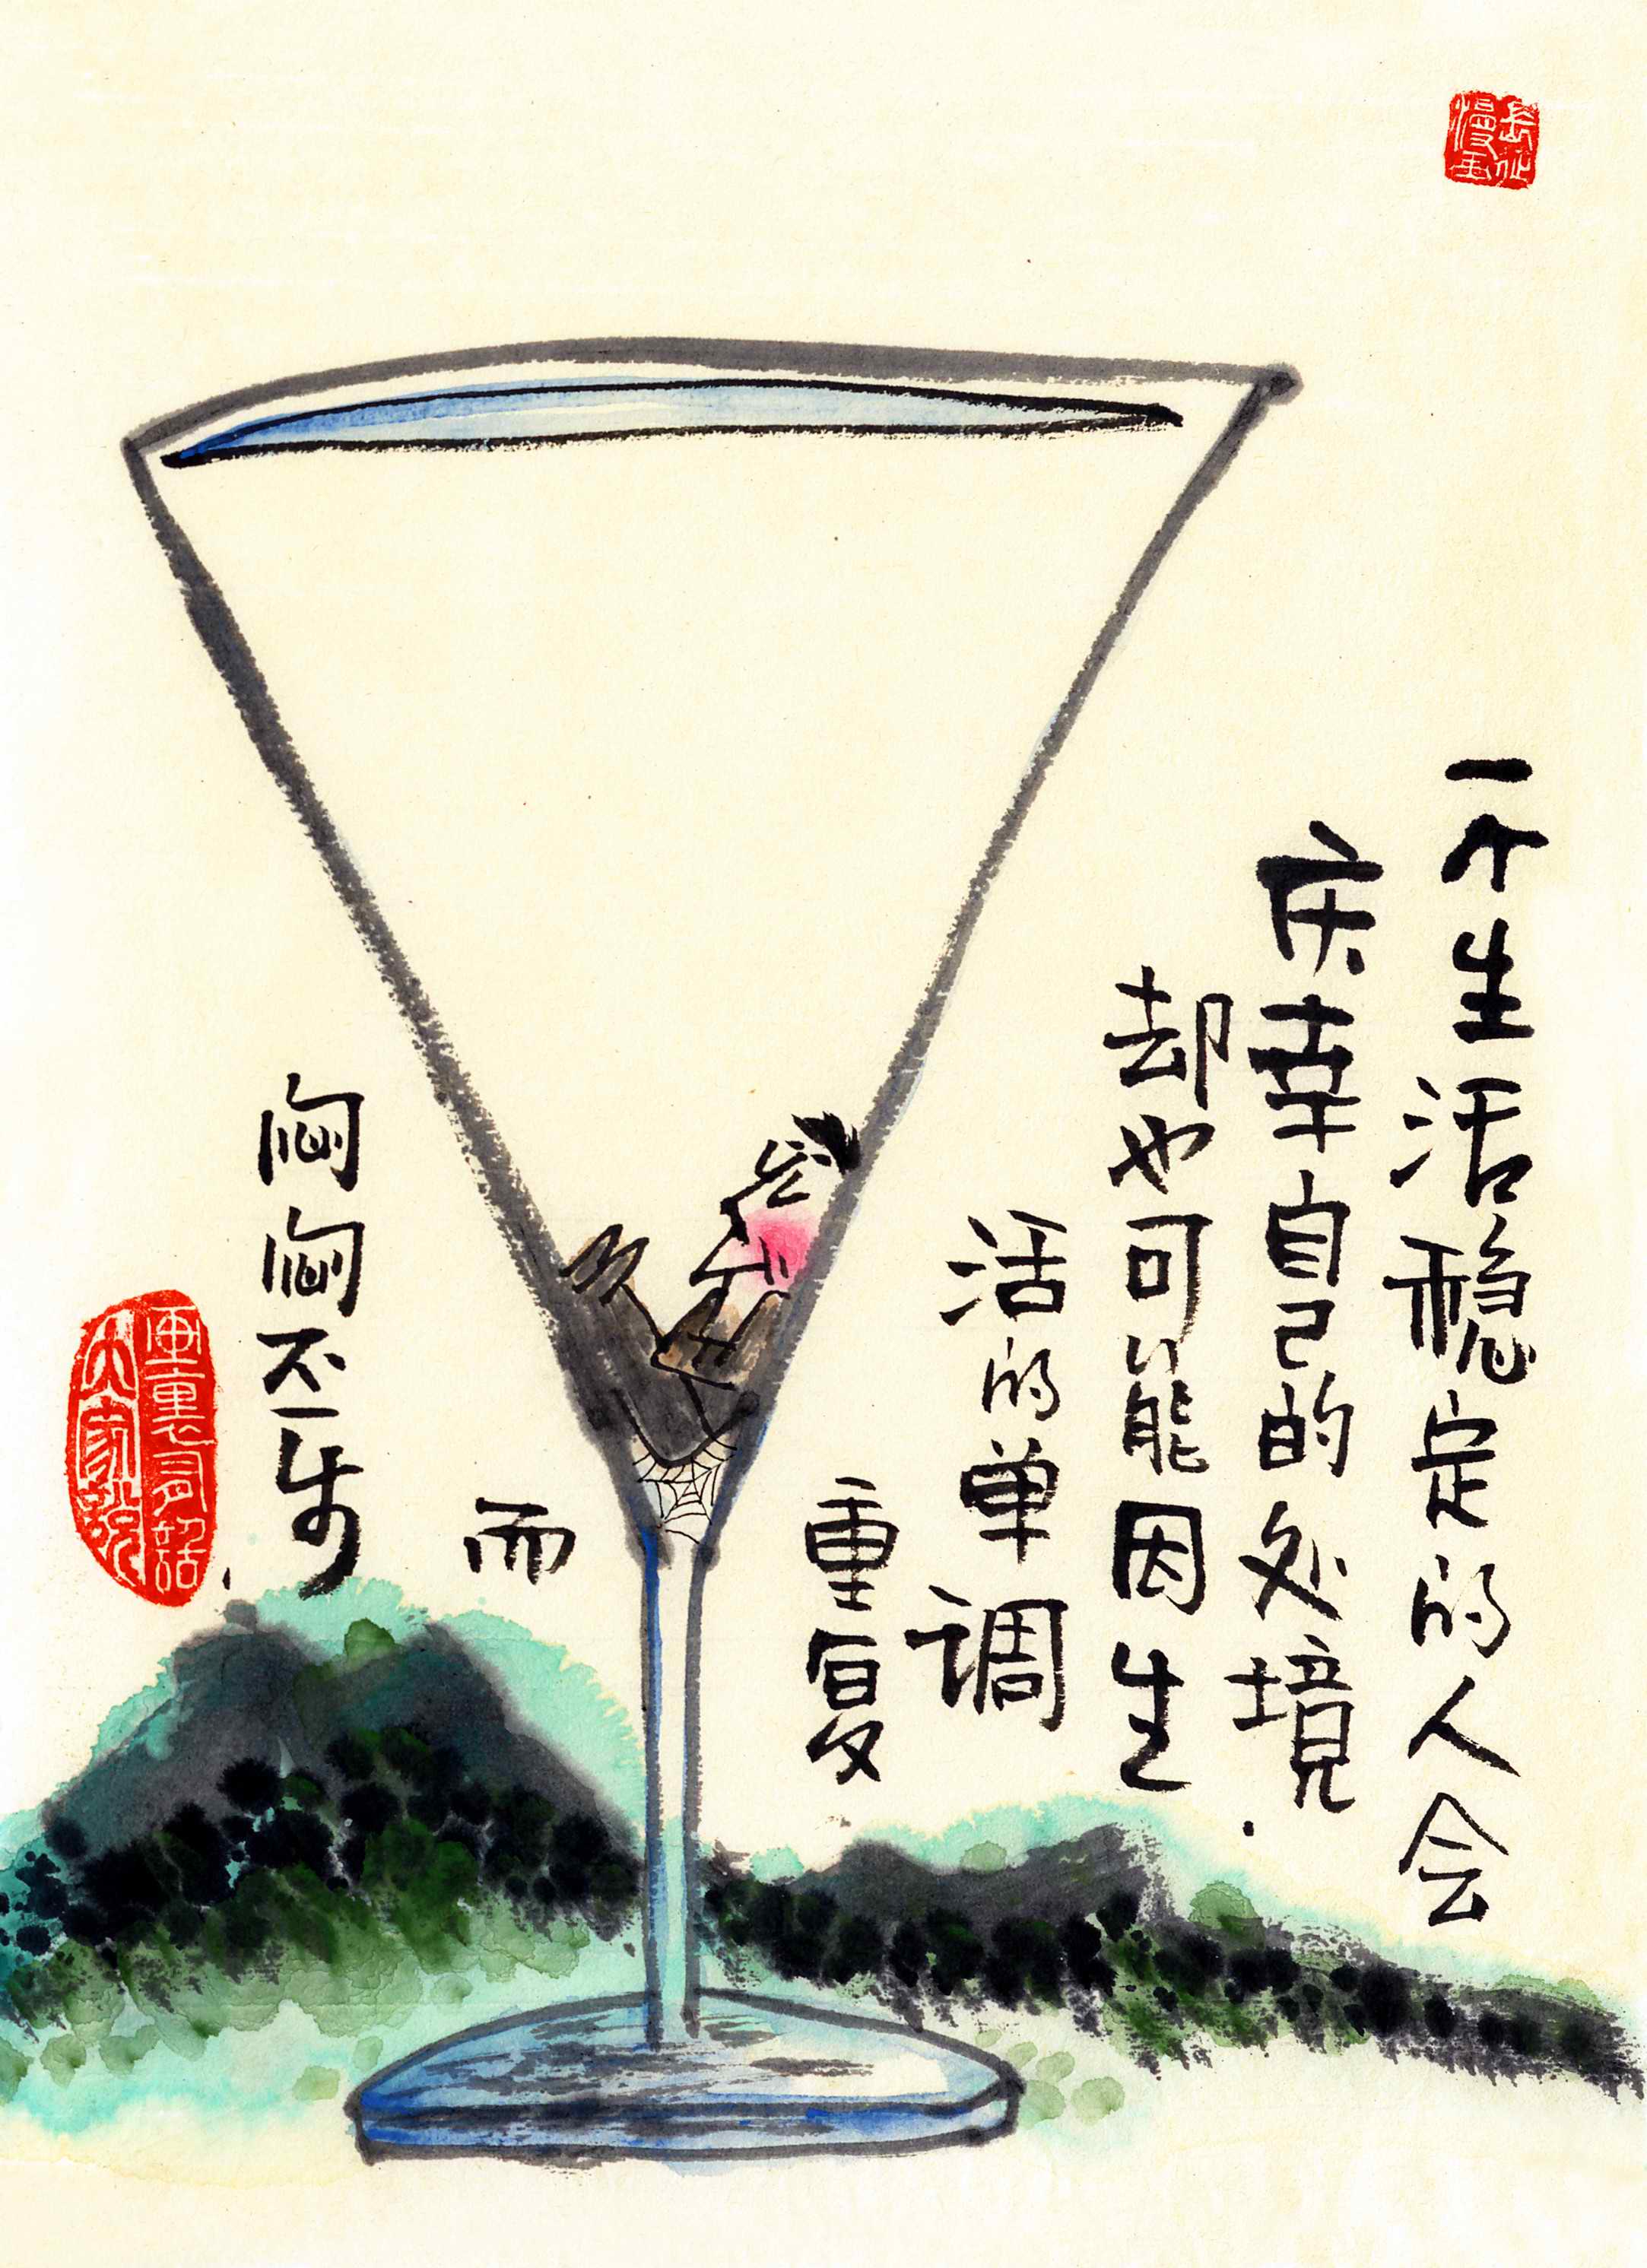 一个生活稳定的人会
庆幸自己的处境
却也可能因生
活的单调
重复
而
闷闷不乐
画裏有話
大家説